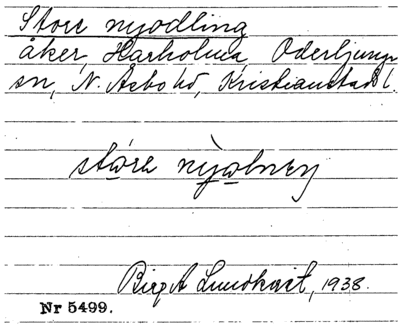 Store nyodling
åker, Harholma, Oderljunga
sn, N. Åsbo hd, Kristianstads l.
Birgit Lundkvist, 1938.
Nr 5499.